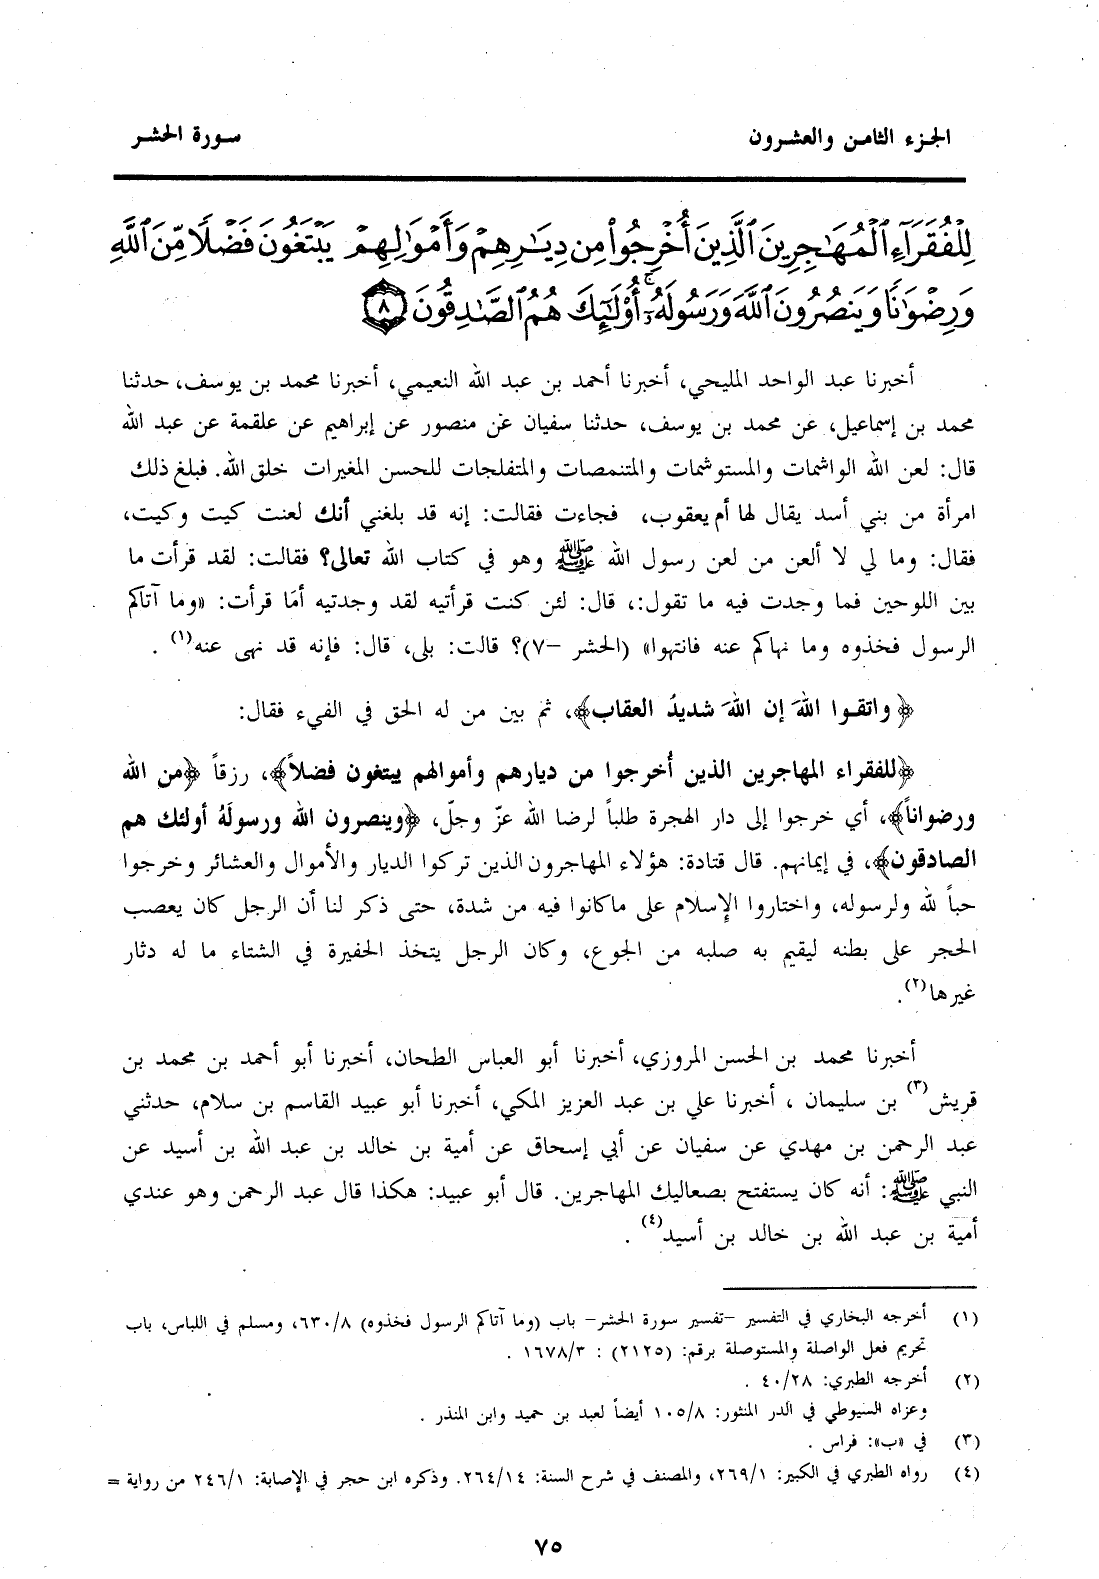 الجزء الثامن والعشرون
سورة الحشر
لِلْفُقَرَآءِ ٱلْمُهَٰجِرِينَ ٱلَّذِينَ أُخْرِجُواْ مِن دِيَٰرِهِمْ وَأَمْوَٰلِهِمْ يَبْتَغُونَ فَضْلًا مِّنَ ٱللَّهِ
وَرِضْوَٰنًا وَيَنصُرُونَ ٱللَّهَ وَرَسُولَهُۥٓ أُوْلَٰٓئِكَ هُمُ ٱلصَّٰدِقُونَ ٨
أخبرنا عبد الواحد المليحي، أخبرنا أحمد بن عبد الله النعيمي، أخبرنا محمد بن يوسف، حدثنا
محمد بن إسماعيل، عن محمد بن يوسف، حدثنا سفيان عن منصور عن إبراهيم عن علقمة عن عبد الله
قال: لعن الله الواشمات والمستوشمات والمتنمصات والمتفلجات للحسن المغيرات خلق الله. فبلغ ذلك
امرأة من بني أسد يقال لها أم يعقوب، فجاءت فقالت: إنه قد بلغني أنك لعنت كيت وكيت،
فقال: وما لي لا ألعن من لعن رسول الله ﷺ وهو في كتاب الله تعالى؟ فقالت: لقد قرأت ما
بين اللوحين فما وجدت فيه ما تقول:، قال: لئن كنت قرأتيه لقد وجدتيه أمَا قرأت: «وما آتاكم
الرسول فخذوه وما نهاكم عنه فانتهوا» (الحشر -٧)؟ قالت: بلى، قال: فإنه قد نهى عنه(١) .
﴿واتقوا اللهَ إن اللهَ شديدُ العقاب﴾، ثم بين من له الحق في الفيء فقال:
﴿للفقراء المهاجرين الذين أُخرجوا من ديارهم وأموالهم يبتغون فضلاً﴾، رزقاً ﴿من الله
ورضواناً﴾، أي خرجوا إلى دار الهجرة طلباً لرضا الله عزّ وجلّ، ﴿وينصرون الله ورسولَهُ أولئك هم
الصادقون﴾، في إيمانهم. قال قتادة: هؤلاء المهاجرون الذين تركوا الديار والأموال والعشائر وخرجوا
حباً لله ولرسوله، واختاروا الإسلام على ماكانوا فيه من شدة، حتى ذكر لنا أن الرجل كان يعصب
الحجر على بطنه ليقيم به صلبه من الجوع، وكان الرجل يتخذ الحفيرة في الشتاء ما له دثار
غيرها(٢).
أخبرنا محمد بن الحسن المروزي، أخبرنا أبو العباس الطحان، أخبرنا أبو أحمد بن محمد بن
قريش(٣) بن سليمان ، أخبرنا علي بن عبد العزيز المكي، أخبرنا أبو عبيد القاسم بن سلام، حدثني
عبد الرحمن بن مهدي عن سفيان عن أبي إسحاق عن أمية بن خالد بن عبد الله بن أسيد عن
النبي ﷺ: أنه كان يستفتح بصعاليك المهاجرين. قال أبو عبيد: هكذا قال عبد الرحمن وهو عندي
أمية بن عبد الله بن خالد بن أسيد(٤) .
(١) أخرجه البخاري في التفسير -تفسير سورة الحشر- باب (وما آتاكم الرسول فخذوه) ٦٣٠/٨، ومسلم في اللباس، باب
تحريم فعل الواصلة والمستوصلة برقم: (٢١٢٥) : ١٦٧٨/٣ .
(٢) أخرجه الطبري: ٤٠/٢٨ .
وعزاه السيوطي في الدر المنثور: ١٠٥/٨ أيضاً لعبد بن حميد وابن المنذر .
(٣) في «ب»: فراس .
(٤) رواه الطبري في الكبير: ٢٦٩/١، والمصنف في شرح السنة: ٢٦٤/١٤. وذكره ابن حجر في الإصابة: ٢٤٦/١ من رواية =
٧٥